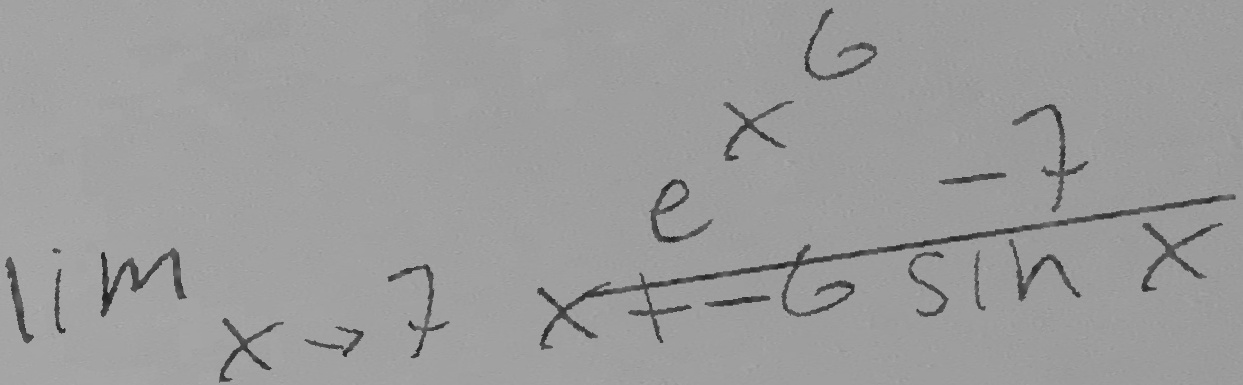 \lim_{x \to 7} \frac{e^{x^6} - 7}{x^7 - 6 \sin x}